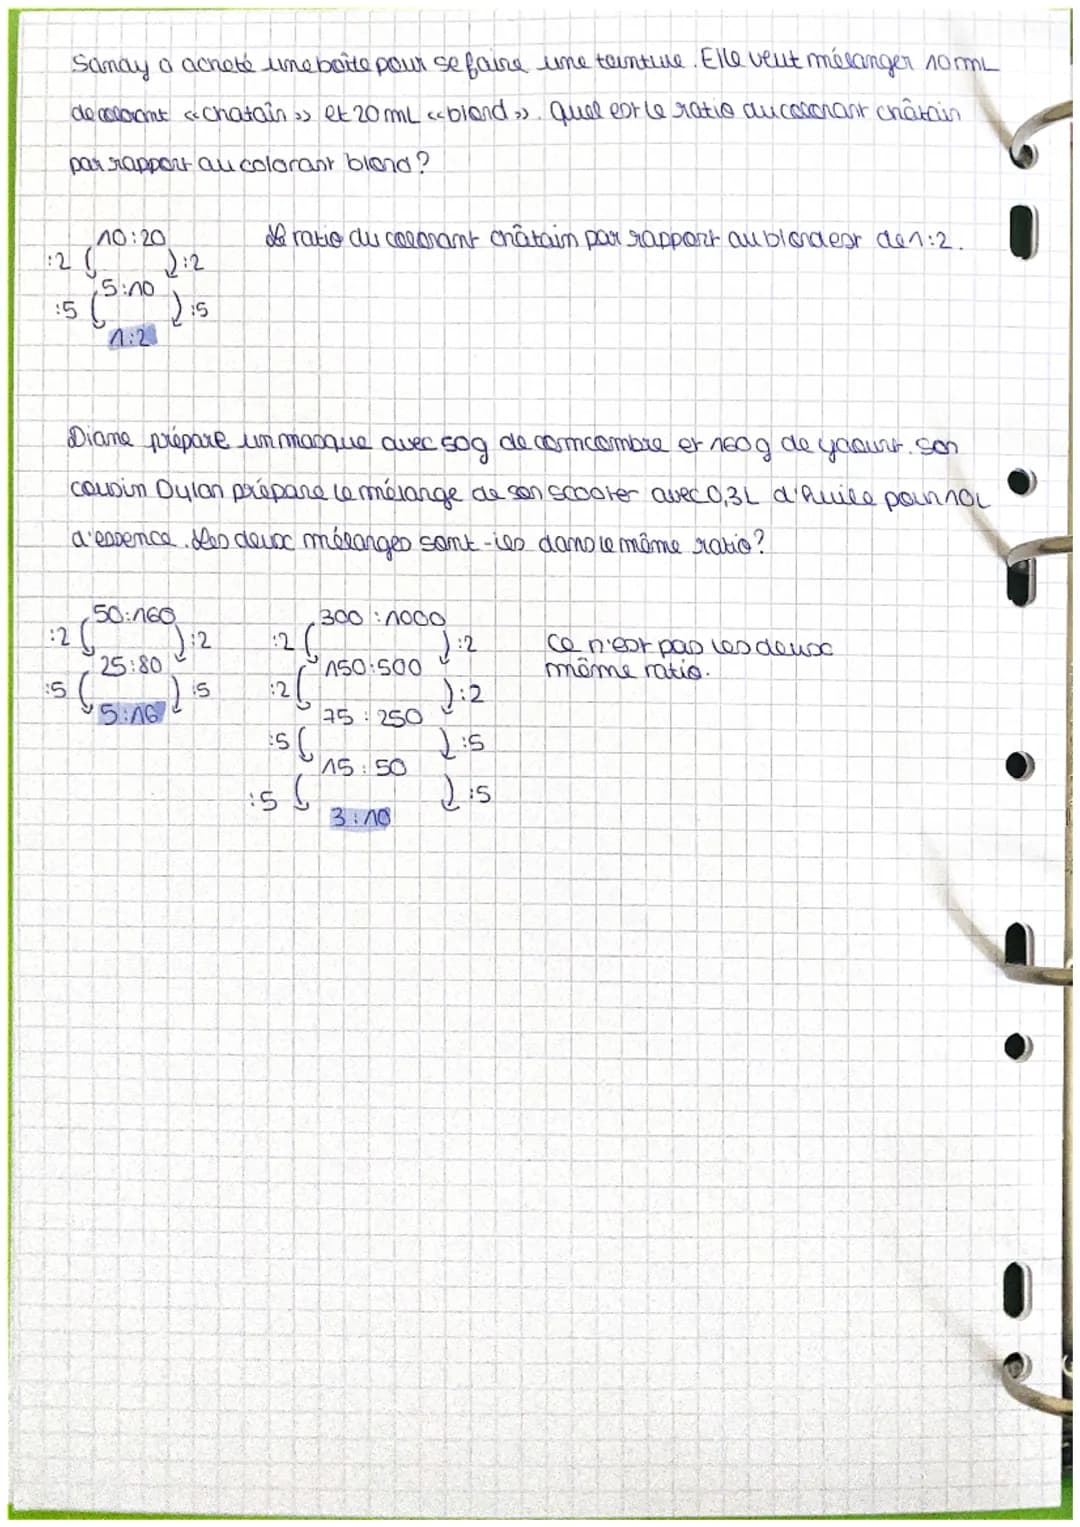 Sandy a acheté une boîte pour se faire une teinture. Elle veut mélanger 10 mL
de colorant «chatain» et 20 mL «blond». Quel est le ratio du colorant châtain
par rapport au colorant blond?
10:20
:2 :2
Le ratio du colorant châtain par rapport au blond est de 1:2.
5:10
:5 :5
1:2
Diane prépare un masque avec 50g de concombre et 160g de yaourt. Son
cousin Dylan prépare le mélange de son scooter avec 0,3L d'huile pour 10L
d'essence. Les deux mélanges sont-ils dans le même ratio?
50:160
:2 :2
25:80
:5 :5
5:16
300:1000
:2 :2
150:500
:2 :2
75:250
:5 :5
15:50
:5 :5
3:10
Ce n'est pas les deux
même ratio.